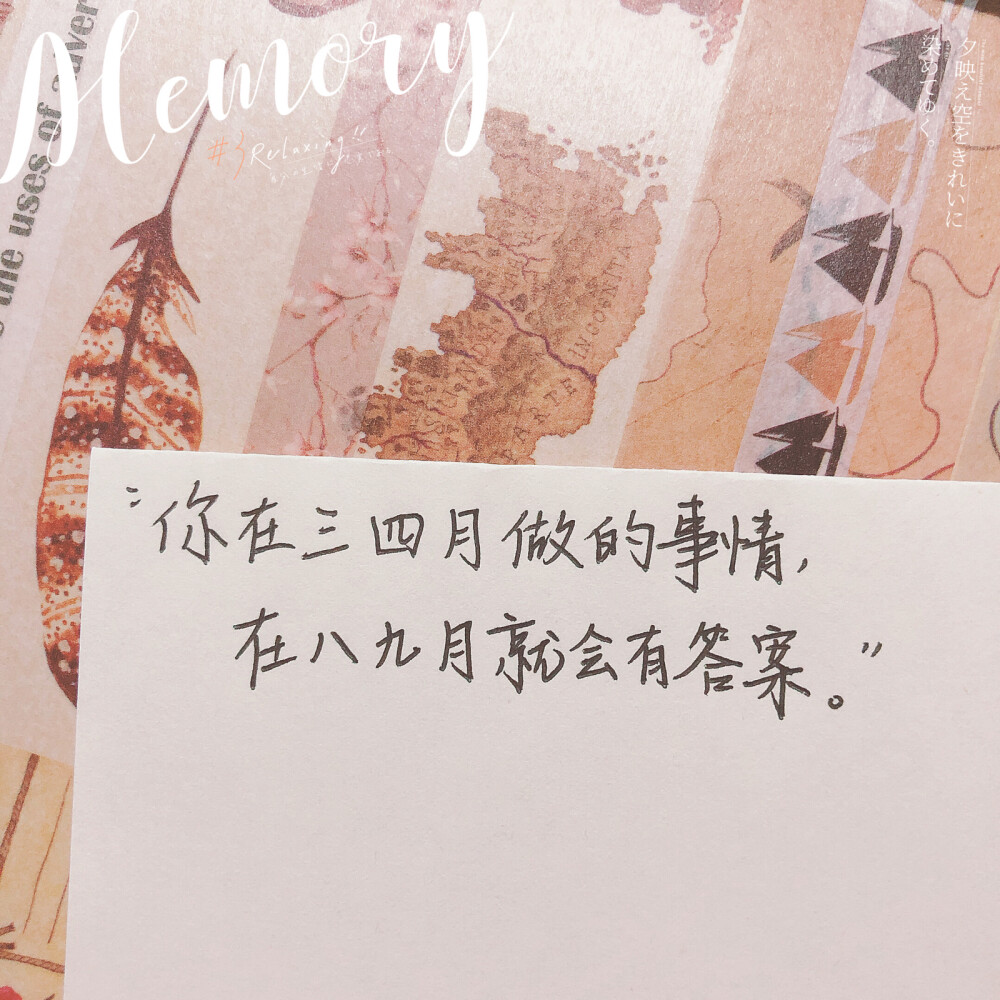 Memory
#3 Relaxing!!
夕映え空をきれいに
染めてゆく。
the uses of adver
INCOGNITA
“你在三四月做的事情,
在八九月就会有答案。”